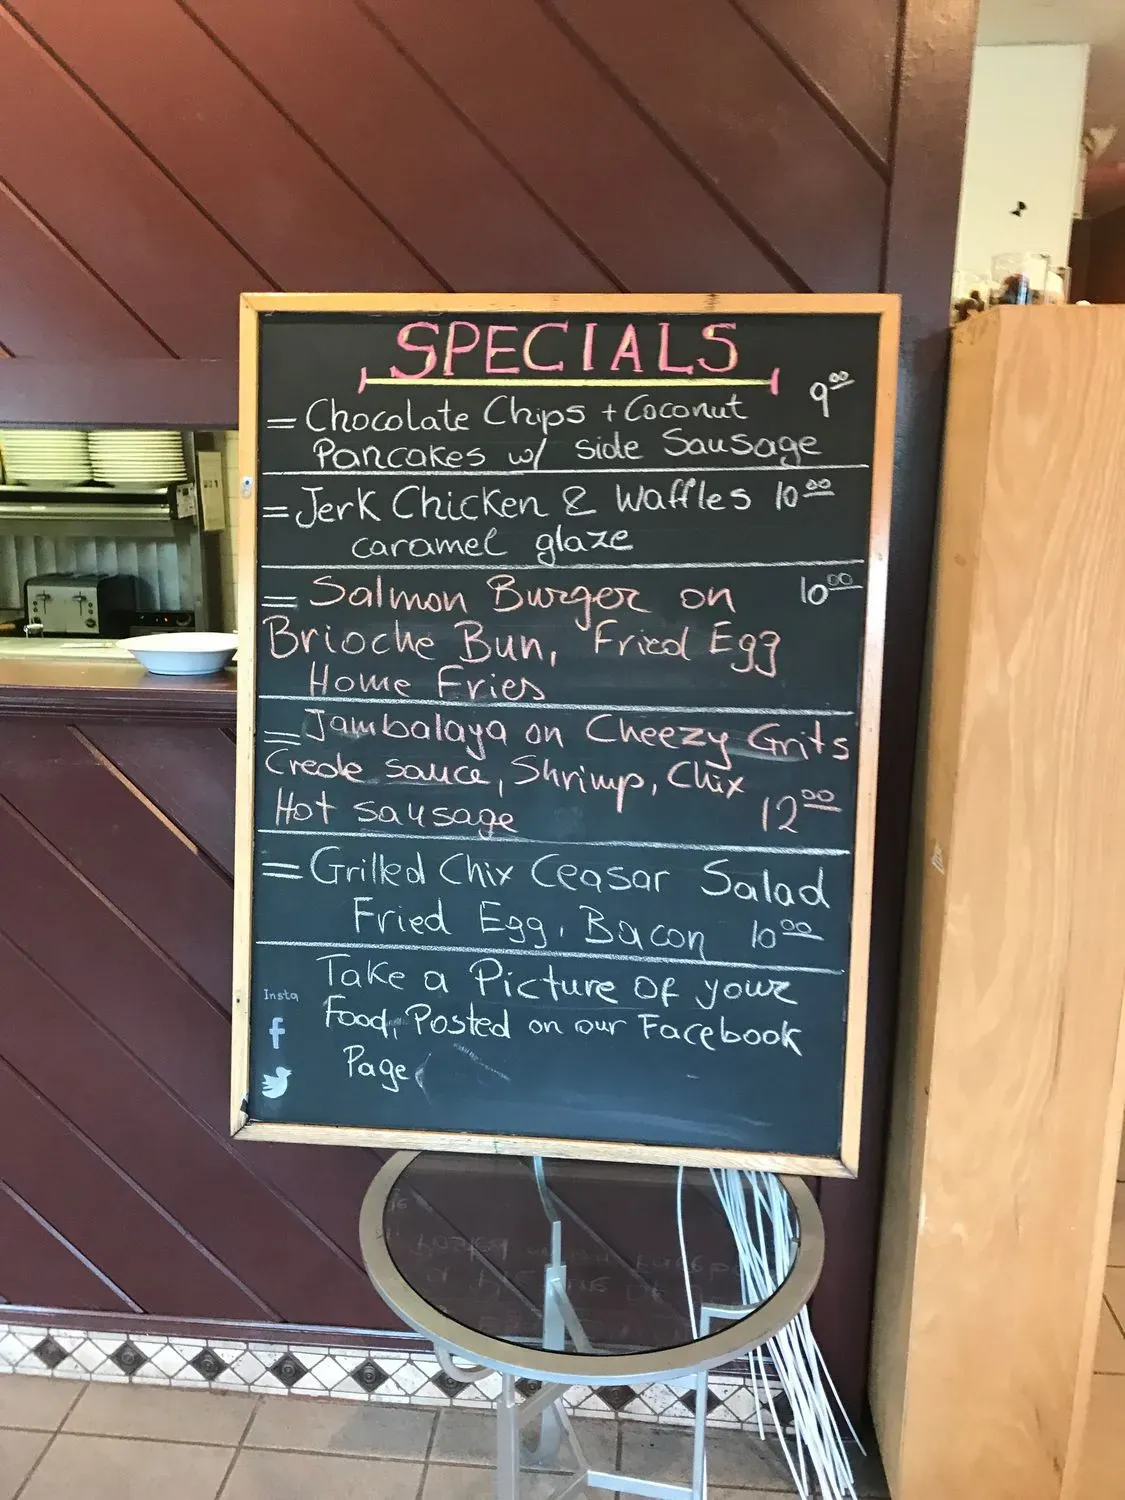 SPECIALS
= Chocolate Chips + Coconut 9.00
Pancakes w/ side Sausage
= Jerk Chicken & Waffles 10.00
caramel glaze
= Salmon Burger on 10.00
Brioche Bun, Fried Egg
Home Fries
= Jambalaya on Cheezy Grits
Creole sauce, Shrimp, Chix
Hot sausage 12.00
= Grilled Chix Ceasar Salad
Fried Egg, Bacon 10.00
Take a Picture of your
Insta
Food, Posted on our Facebook
f
Page